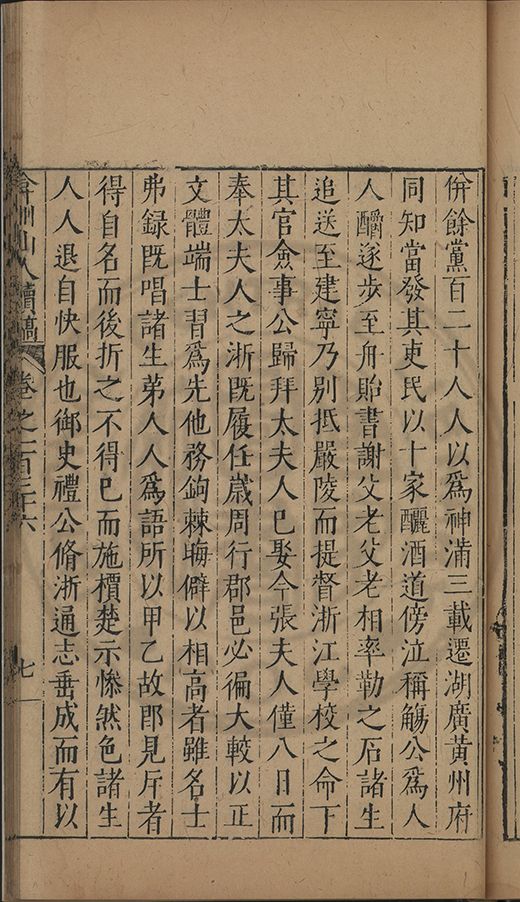 併餘黨百二十人人以爲神滿三載遷湖廣黃州府
同知當發其吏民以十家釃酒道傍泣稱觴公爲人
人釂逐步至舟貽書謝父老父老相率勒之石諸生
追送至建寧乃別抵嚴陵而提督浙江學校之命下
其官僉事公歸拜太夫人已娶今張夫人僅八日而
奉太夫人之浙既履任歲周行郡邑必徧大較以正
文體端士習爲先他務鉤棘晦僻以相高者雖名士
弗録既唱諸生弟人人爲語所以甲乙故即見斥者
得自名而後折之不得已而施檟楚示慘然色諸生
人人退自快服也御史禮公脩浙通志垂成而有以
弇州山人續稿 卷之一百三十六 七